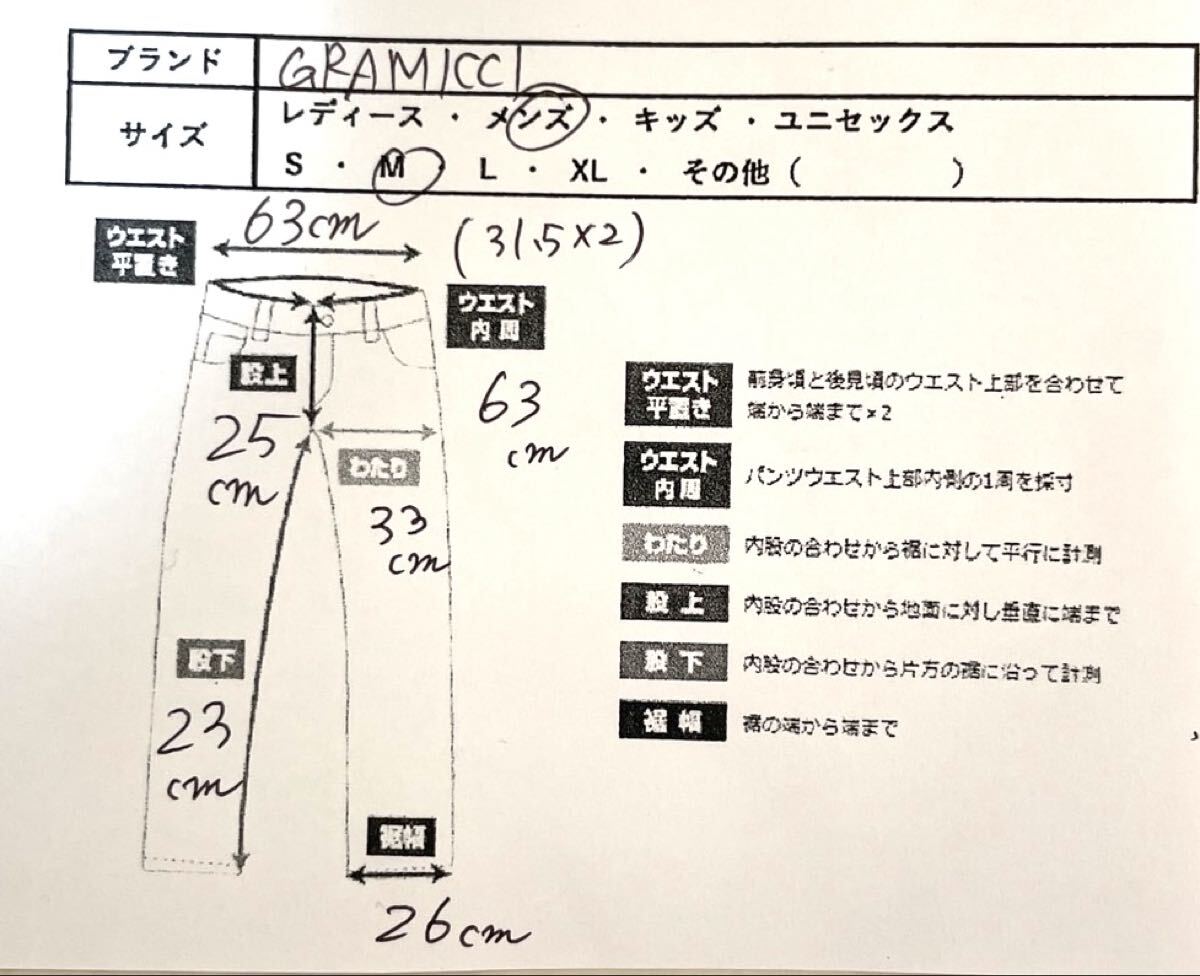 ブランド GRAMICCI
サイズ レディース ・ メンズ ・ キッズ ・ユニセックス
S ・ M ・ L ・ XL ・ その他 ( )
ウエスト
平置き
63cm (31.5×2)
ウエスト
内周
63
cm
股上
25
cm
わたり
33
cm
股下
23
cm
裾幅
26cm
ウエスト
平置き
前身頃と後見頃のウエスト上部を合わせて
端から端まで×2
ウエスト
内周
パンツウエスト上部内側の1周を採寸
わたり 内股の合わせから裾に対して平行に計測
股上 内股の合わせから地面に対し垂直に端まで
股下 内股の合わせから片方の裾に沿って計測
裾幅 裾の端から端まで